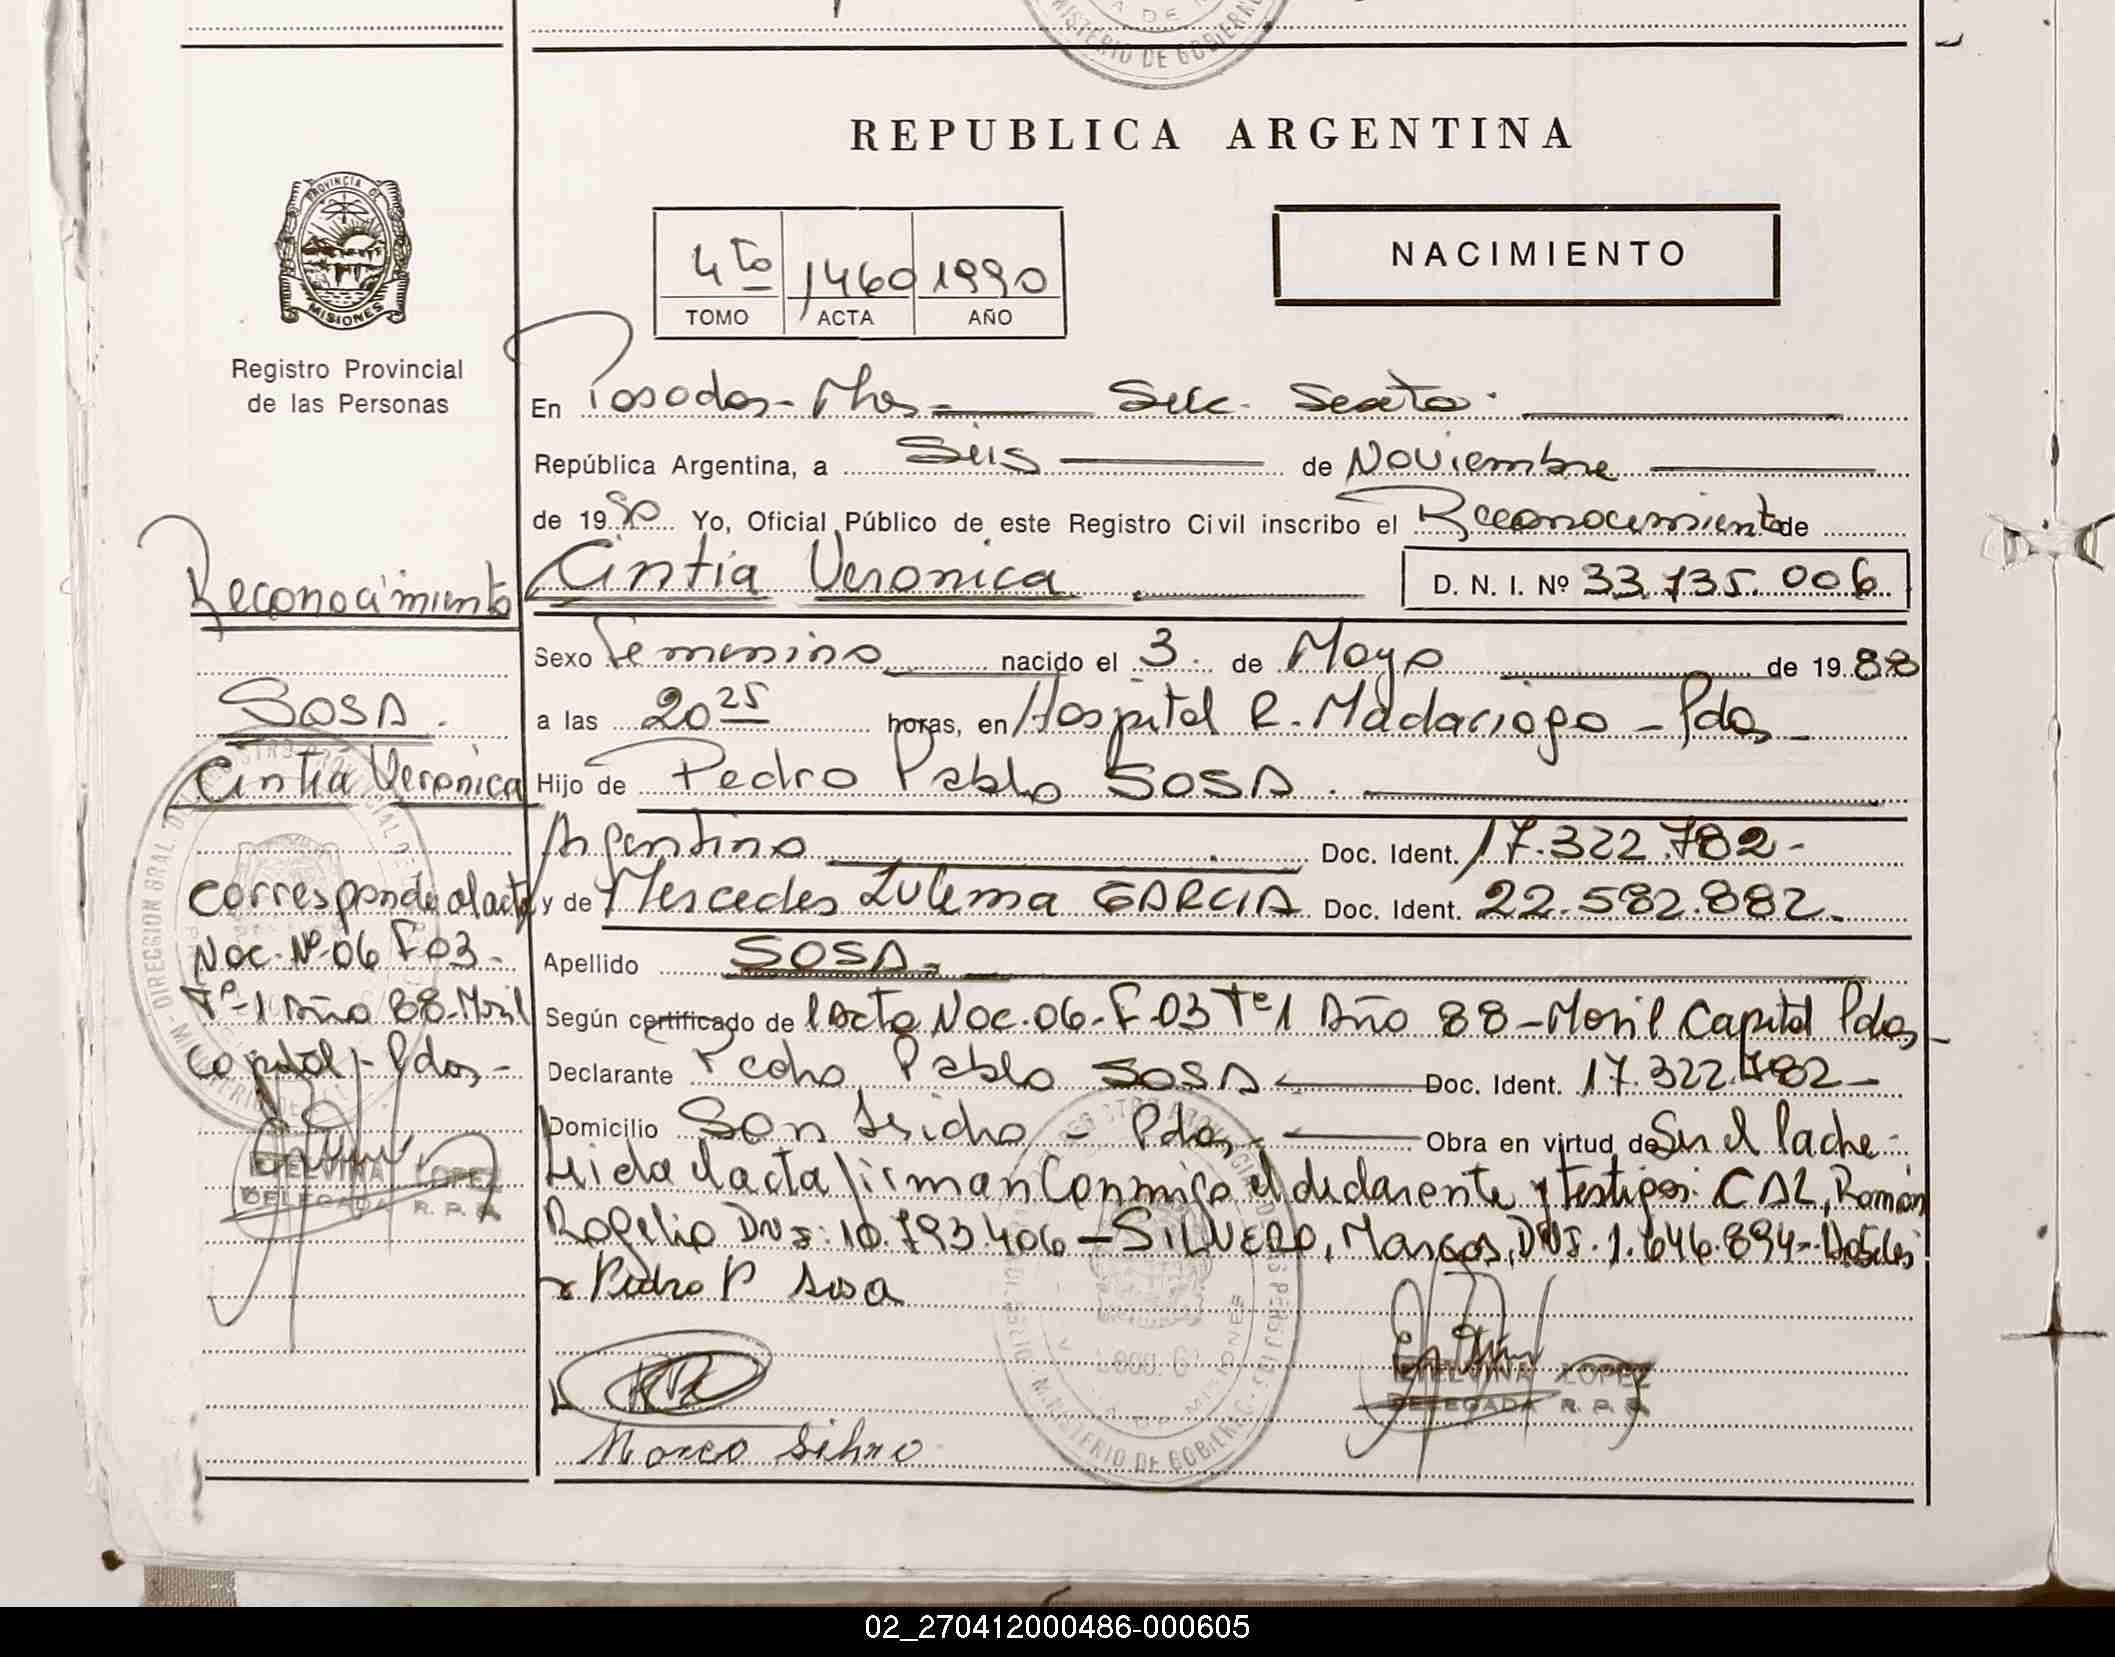 MINISTERIO DE GOBIERNO
REPUBLICA ARGENTINA
PROVINCIA DE
MISIONES
Registro Provincial
de las Personas
4to 1460 1990
TOMO ACTA AÑO
NACIMIENTO
En Posadas - Mnes - Secc. Sexta.
República Argentina, a Seis de Noviembre
de 1990 Yo, Oficial Público de este Registro Civil inscribo el Reconocimiento de
Cintia Veronica D. N. I. Nº 33.735.006
Sexo Femenino nacido el 3 de Mayo de 1988
a las 20 25 horas, en Hospital R. Madariaga - Pdas -
Hijo de Pedro Pablo SOSA.
Argentino Doc. Ident. 17.322.782-
y de Mercedes Zulema GARCIA Doc. Ident. 22.582.882-
Apellido SOSA-
Según certificado de l Acta Nac. 06- F. 03 Tº 1 Año 88 - Movil Capital Pdas -
Declarante Pedro Pablo SOSA Doc. Ident. 17.322.782-
Domicilio San Isidro - Pdas - Obra en virtud de Ser el Padre -
Leida el acta firman Conmigo el declarante y testigos: CAL, Roman
Rogelio DNI: 10.793.406 - SILVERO, Marcos, DNI. 1.646.894-
Pedro P Sosa
Marco Silvero
ETELVINA LOPEZ
DELEGADA R. P. P.
Reconocimiento
SOSA.
Cintia Veronica
corresponde al acta
Nac. Nº 06 F 03-
Tº-1 Año 88- Movil
Capital - Pdas -
ETELVINA LOPEZ
DELEGADA R. P. P.
02_270412000486-000605